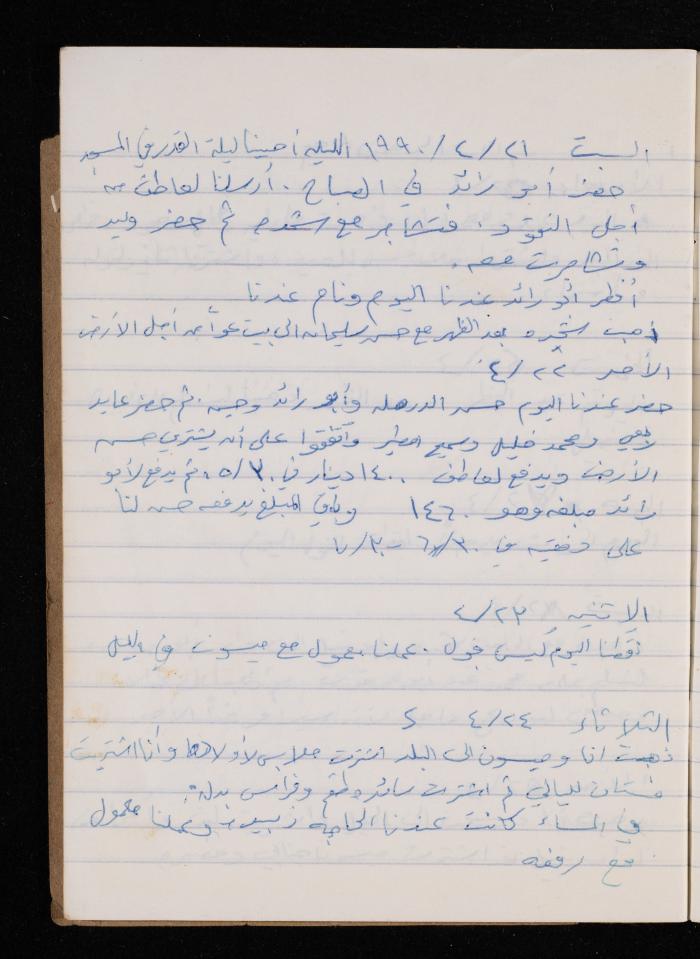 السبت ٢١/٤/١٩٩٠ الليلة أحيينا ليلة القدر في المسجد
حضر أبو رائد في الصباح. أرسلنا لعاطف من
أجل النقود. فتشاجر مع شحده ثم حضر وليد
وتشاجرت معه.
أفطر أبو رائد عندنا اليوم ونام عندنا
ذهب شحده بعد الظهر مع حسن سليمان الى بيت عوا من أجل الأرض
الأحد ٢٢/٤
حضر عندنا اليوم حسن الدرهلي وأبو رائد وحسن. ثم حضر عايد
ومحمد خليل وسميح مطير وأتفقوا على أن يشتري حسن
الأرض ويدفع لعاطف ١٤٠٠ دينار في ٣٠/٥. ثم يدفع لأبو
رائد مبلغه وهو ١٤٦٠ وباقي المبلغ يدفعه حسن لنا
على دفعتين في ٣٠/٦ - ٣٠/٧
الإثنين ٢٣/٤
نقطنا اليوم كيس فول. عملنا معمول مع ميسون في الليل
الثلاثاء ٢٤/٤
ذهبت انا وميسون الى البلد اشترت ملابس لأولادها وأنا اشتريت
فستان لليالي ثم اشترت لسائد وطقم وفراس بدلة.
في المساء كانت عندنا الحاجة زبيدة وعملنا معمول
مع رفقه